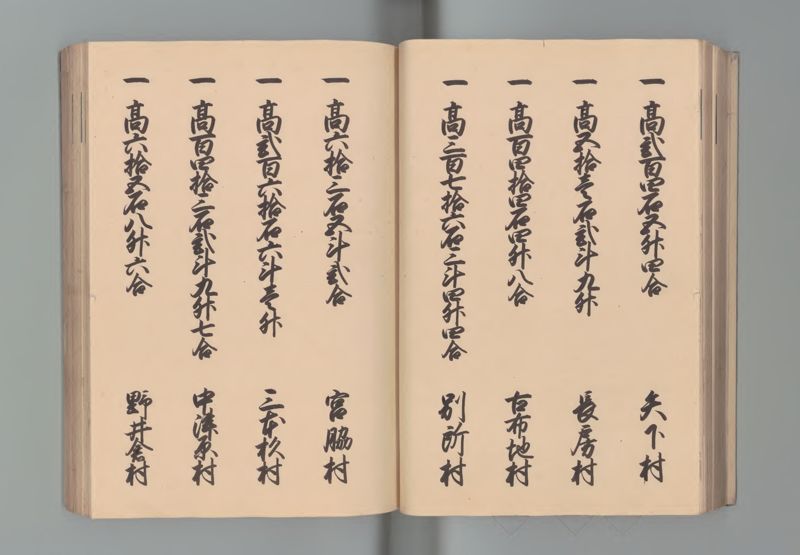 一 高弐百四石五升四合 矢下村
一 高五拾壱石弐斗九升 長房村
一 高百四拾四石四升八合 古布地村
一 高三百七拾六石三斗四升四合 別所村
一 高六拾三石五斗弐合 宮脇村
一 高弐百六拾石六斗壱升 三本杦村
一 高百四拾三石弐斗九升七合 中津原村
一 高六拾五石八升六合 野井倉村